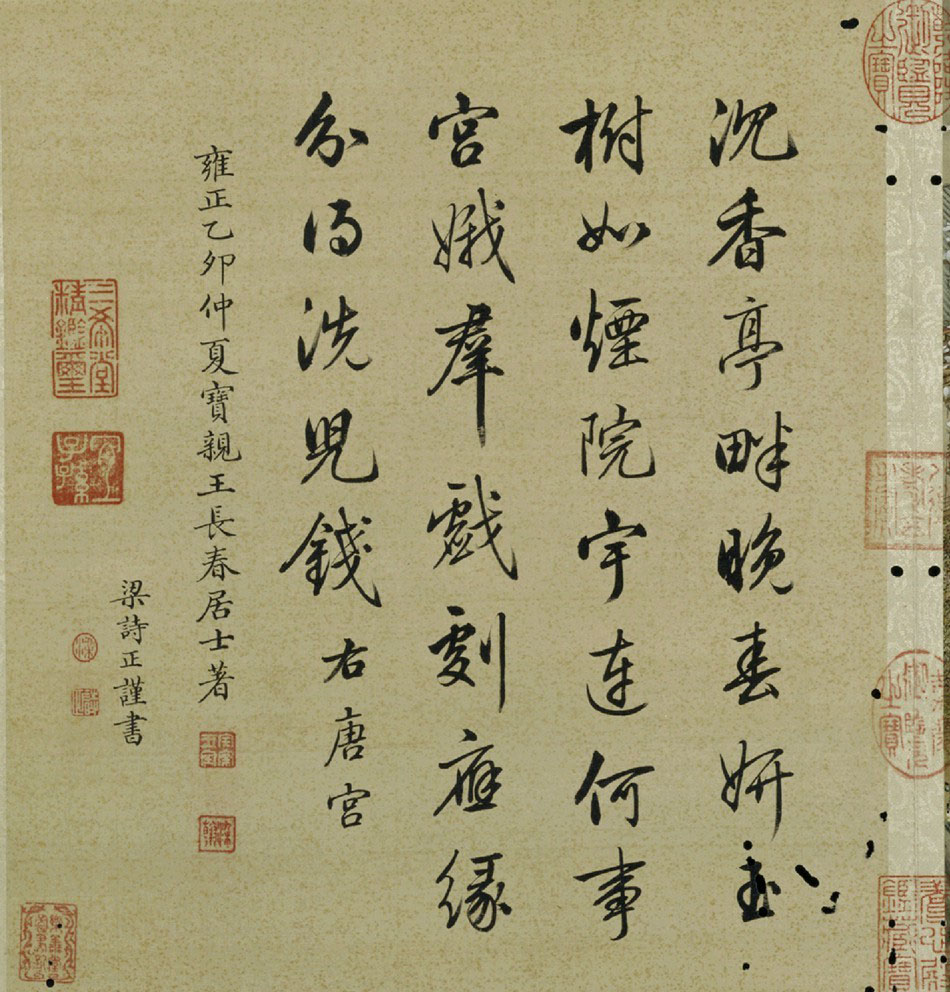 沉香亭畔晚春妍玉
樹如煙院宇連何事
宮娥羣戲劇應緣
分得洗兒錢 右唐宮
雍正乙卯仲夏寶親王長春居士著
梁詩正謹書
三希堂精鑑璽
宜子孫